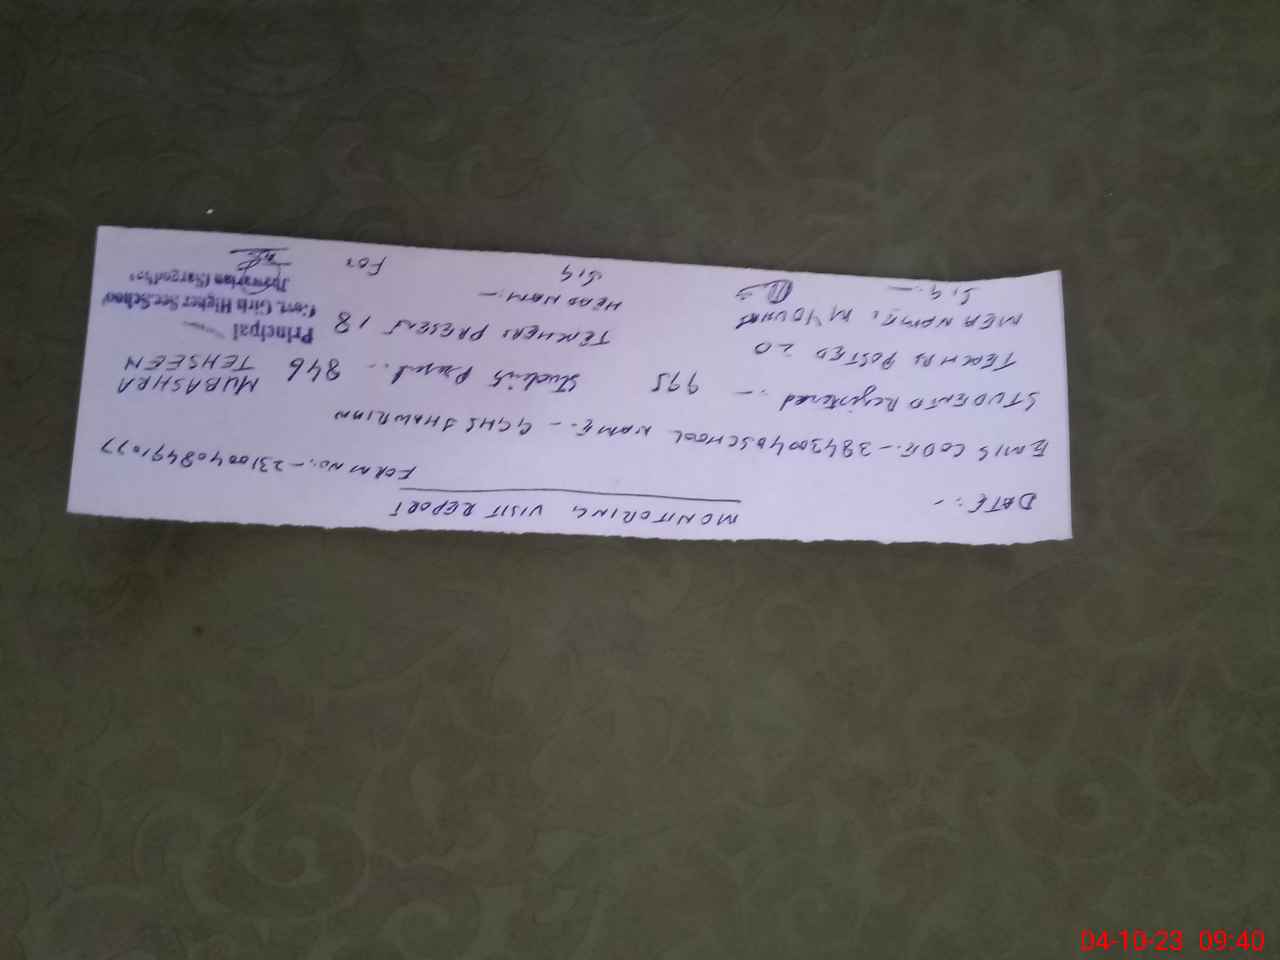 MONITORING VISIT REPORT
DATE:-
FORM NO:- 231004084491077
EMIS CODE:- 38430040 SCHOOL NAME:- GGHS JHAWRIAN
STUDENTS Registered :- 995 Students Present :- 846 MUBASHRA TEHSEEN
TEACHERS POSTED 20 TEACHERS PRESENT 18
MEA NAME:- M YOUNAS HEAD NAM:-
Sig:- Sig For
Principal
Govt. Girls Higher Sec. School
Jhawarian (Sargodha)
04-10-23 09:40